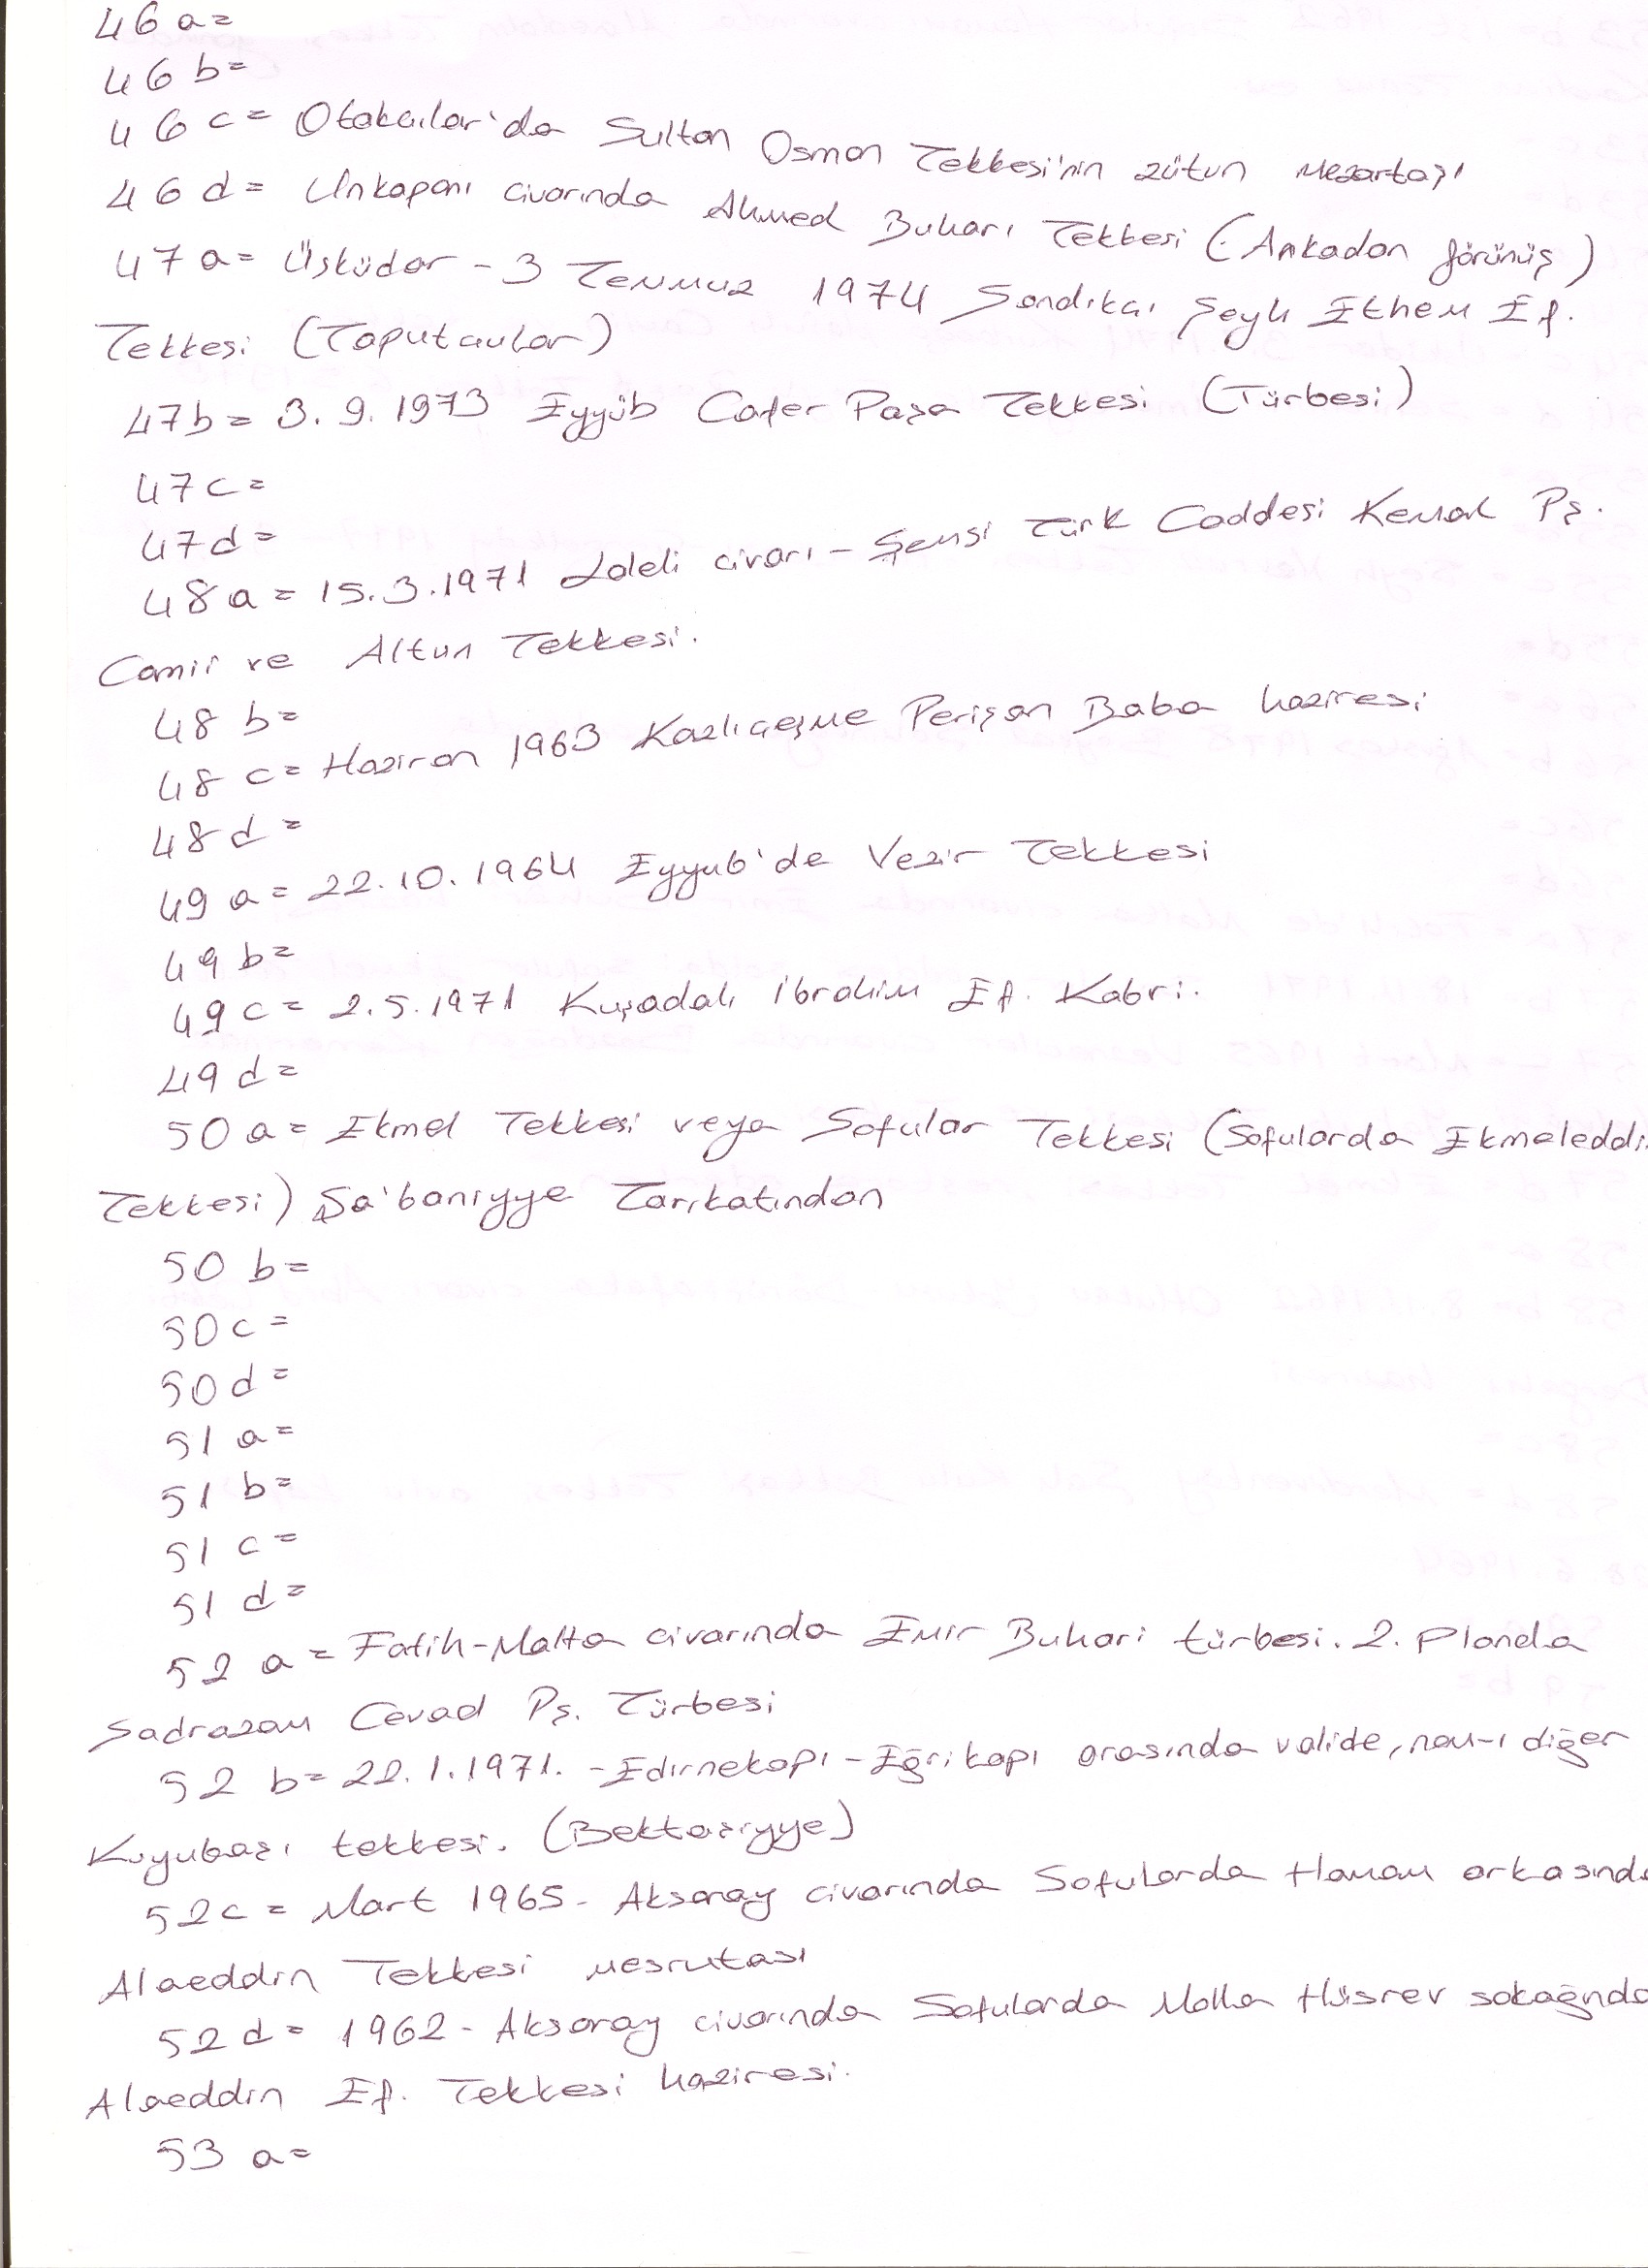 46 a=
46 b=
46 c= Otakcılar'da Sultan Osman Tekkesi'nin zütun Mezartaşı
46 d= Unkapanı civarında Ahmed Buharı Tekkesi (Arkadan görünüş)
47 a= Üsküdar - 3 Temmuz 1974 Sandıkcı Şeyh Ethem Ef.
Tekkesi (Taputcular)
47b= 3.9.1973 Eyyüb Cafer Paşa Tekkesi (Türbesi)
47c=
47d=
48 a= 15.3.1971 Laleli civarı - Şemsi Türk Caddesi Kemal Pş.
Camii ve Altun Tekkesi.
48 b=
48 c= Haziran 1963 Kazlıçeşme Perişan Baba haziresi
48 d=
49 a= 22.10.1964 Eyyub'de Vezir Tekkesi
49 b=
49 c= 2.5.1971 Kuşadalı İbrahim Ef. Kabri.
49 d=
50 a= Ekmel Tekkesi veya Sofular Tekkesi (Sofularda Ekmeleddi
Tekkesi) Şa'baniyye Tarikatından
50 b=
50 c=
50 d=
51 a=
51 b=
51 c=
51 d=
52 a= Fatih-Malta civarında Emir Buhari türbesi. 2. Planda
Sadrazam Cevad Pş. Türbesi
52 b= 22.1.1971. - Edirnekapı - Eğrikapı arasında valide, nam-ı diğer
Kuyubaşı tekkesi. (Bektaşiyye)
52c= Mart 1965 - Aksaray civarında Sofularda Hamam arkasında
Alaeddin Tekkesi meşrutası
52 d= 1962 - Aksaray civarında Sofularda Molla Hüsrev sokağında
Alaeddin Ef. Tekkesi haziresi.
53 a=